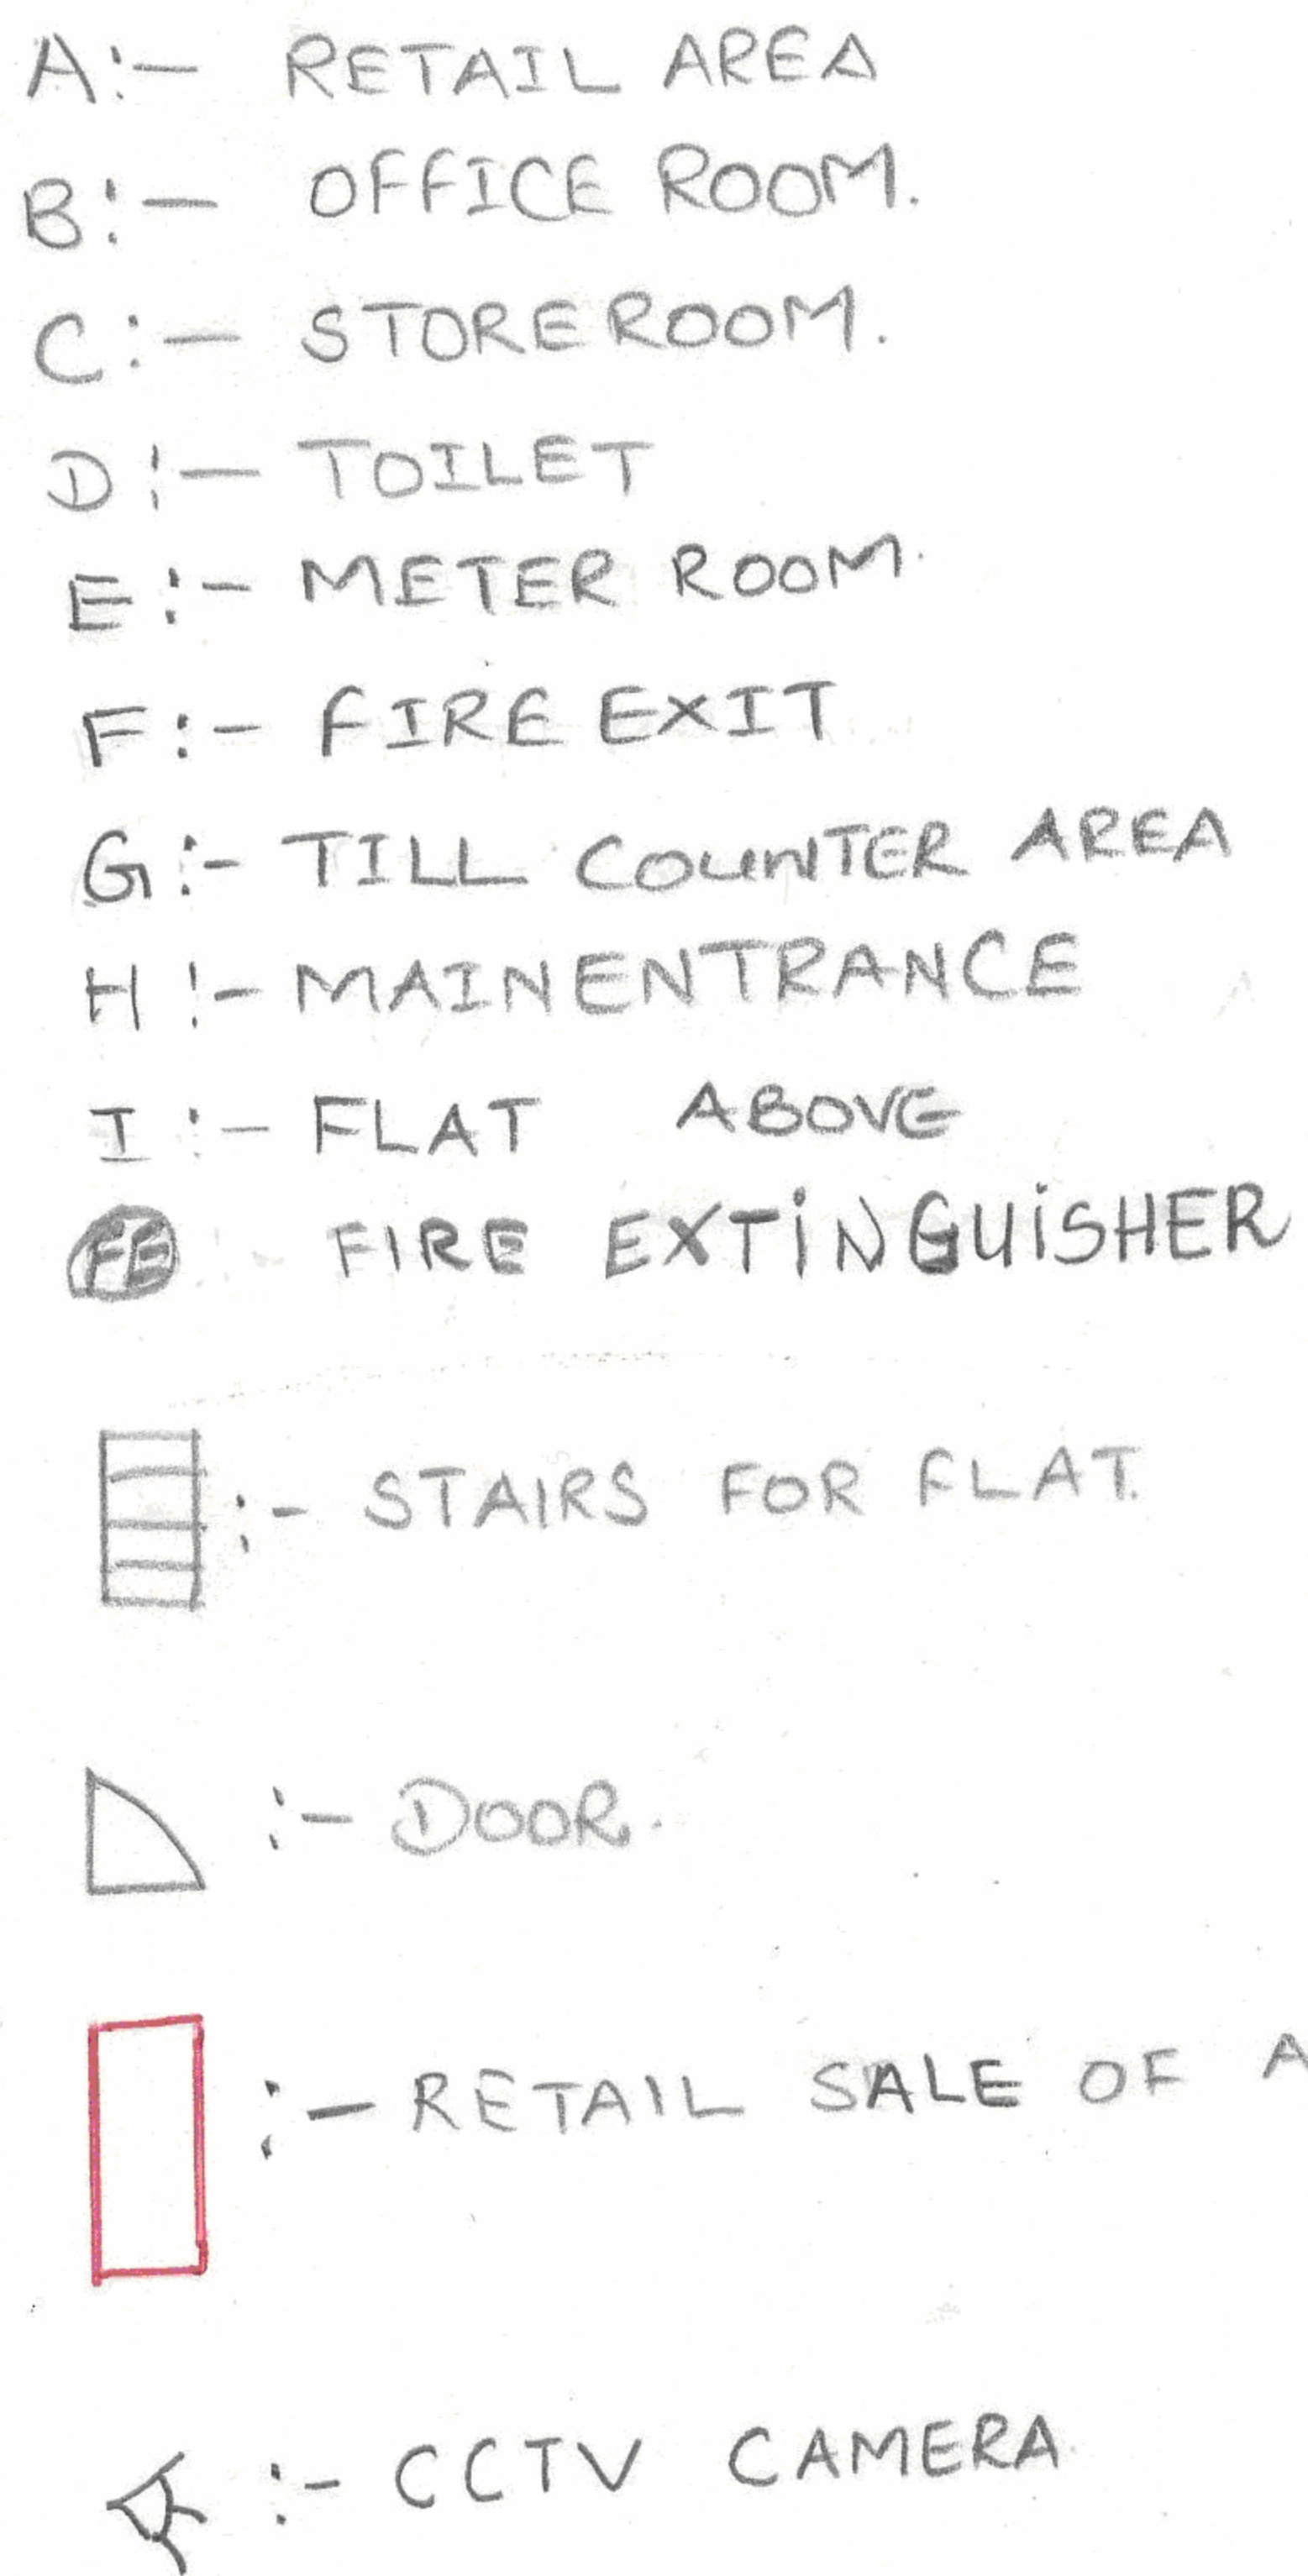 A:- RETAIL AREA
B:- OFFICE ROOM.
C:- STORE ROOM.
D:- TOILET
E:- METER ROOM.
F:- FIRE EXIT
G:- TILL COUNTER AREA
H:- MAIN ENTRANCE
I:- FLAT ABOVE
FE FIRE EXTINGUISHER
:- STAIRS FOR FLAT.
:- DOOR.
:- RETAIL SALE OF A
:- CCTV CAMERA